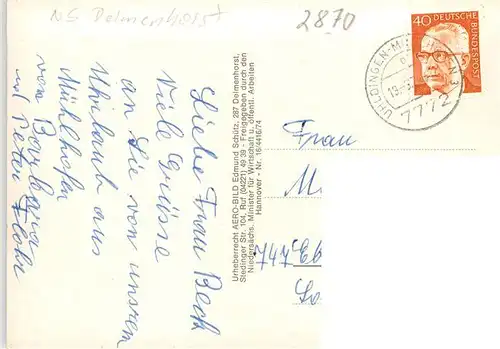 NS Delmenhorst
2870
40 DEUTSCHE
BUNDESPOST
UHLDINGEN-M HOFEN 3
7772
Liebe Frau Beck
Viele Grüsse
an Sie von unserem
Urlaub aus
Mühlhofen
von Barbara
und Peter Flohr
Urheberrecht AERO-BILD Edmund Schütz, 287 Delmenhorst,
Stedinger Str. 104, Ruf (04221) 49 39 - Freigegeben durch den
Niedersächs. Minister für Wirtschaft u. öffentl. Arbeiten
Hannover - Nr. 16/4416/74
Frau
M.
747 Eb